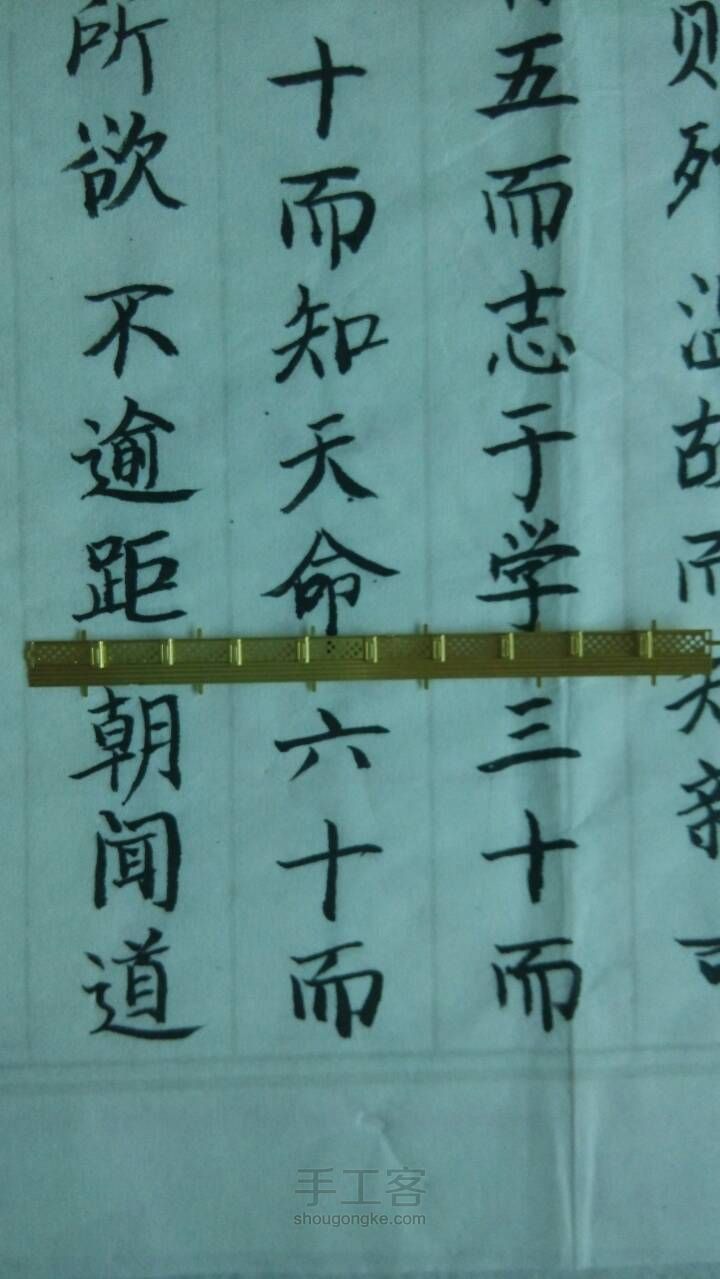 则殆温故而知新可
五而志于学三十而
十而知天命六十而
所欲不逾距朝闻道
手工客
shougongke.com